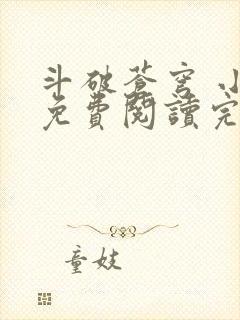 斗破蒼穹 小
免費閱讀完
童妓